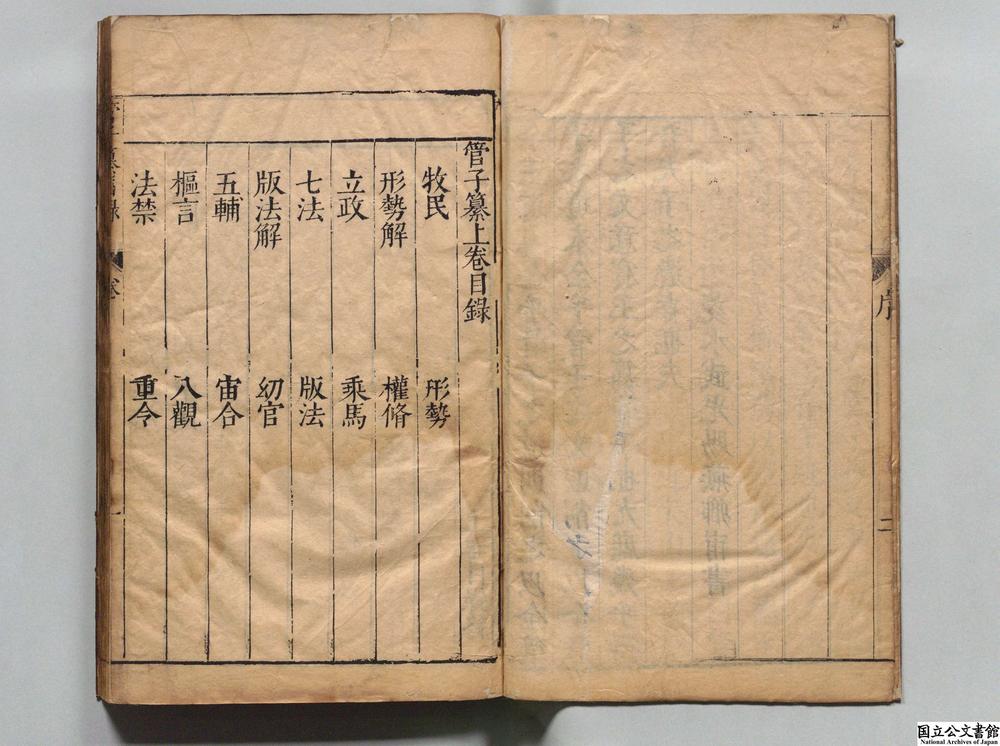 序
二
管子纂上卷目錄
牧民 形勢
形勢解 權脩
立政 乘馬
七法 版法
版法解 幼官
五輔 宙合
樞言 八觀
法禁 重令
国立公文書館
National Archives of Japan